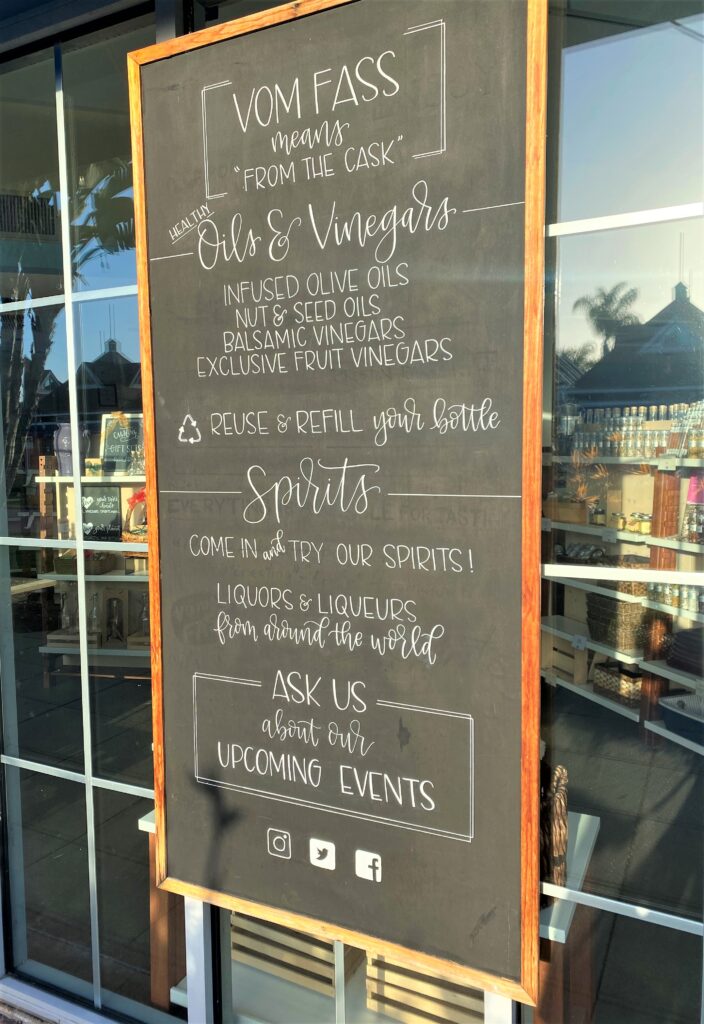 VOM FASS
means
"FROM THE CASK"
HEALTHY
Oils & Vinegars
INFUSED OLIVE OILS
NUT & SEED OILS
BALSAMIC VINEGARS
EXCLUSIVE FRUIT VINEGARS
REUSE & REFILL your bottle
Spirits
COME IN and TRY OUR SPIRITS!
LIQUORS & LIQUEURS
from around the world
ASK US
about our
UPCOMING EVENTS
GIFT SETS